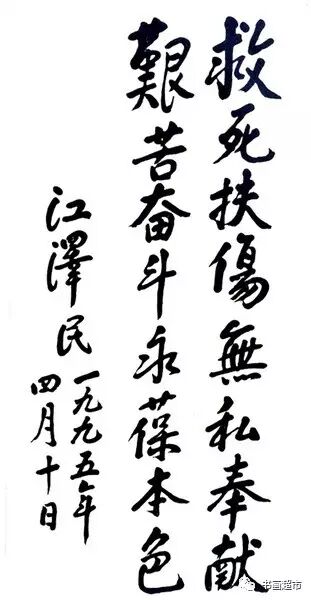 救死扶傷無私奉献
艱苦奋斗永葆本色
江澤民
一九九五年
四月十日
书画超市